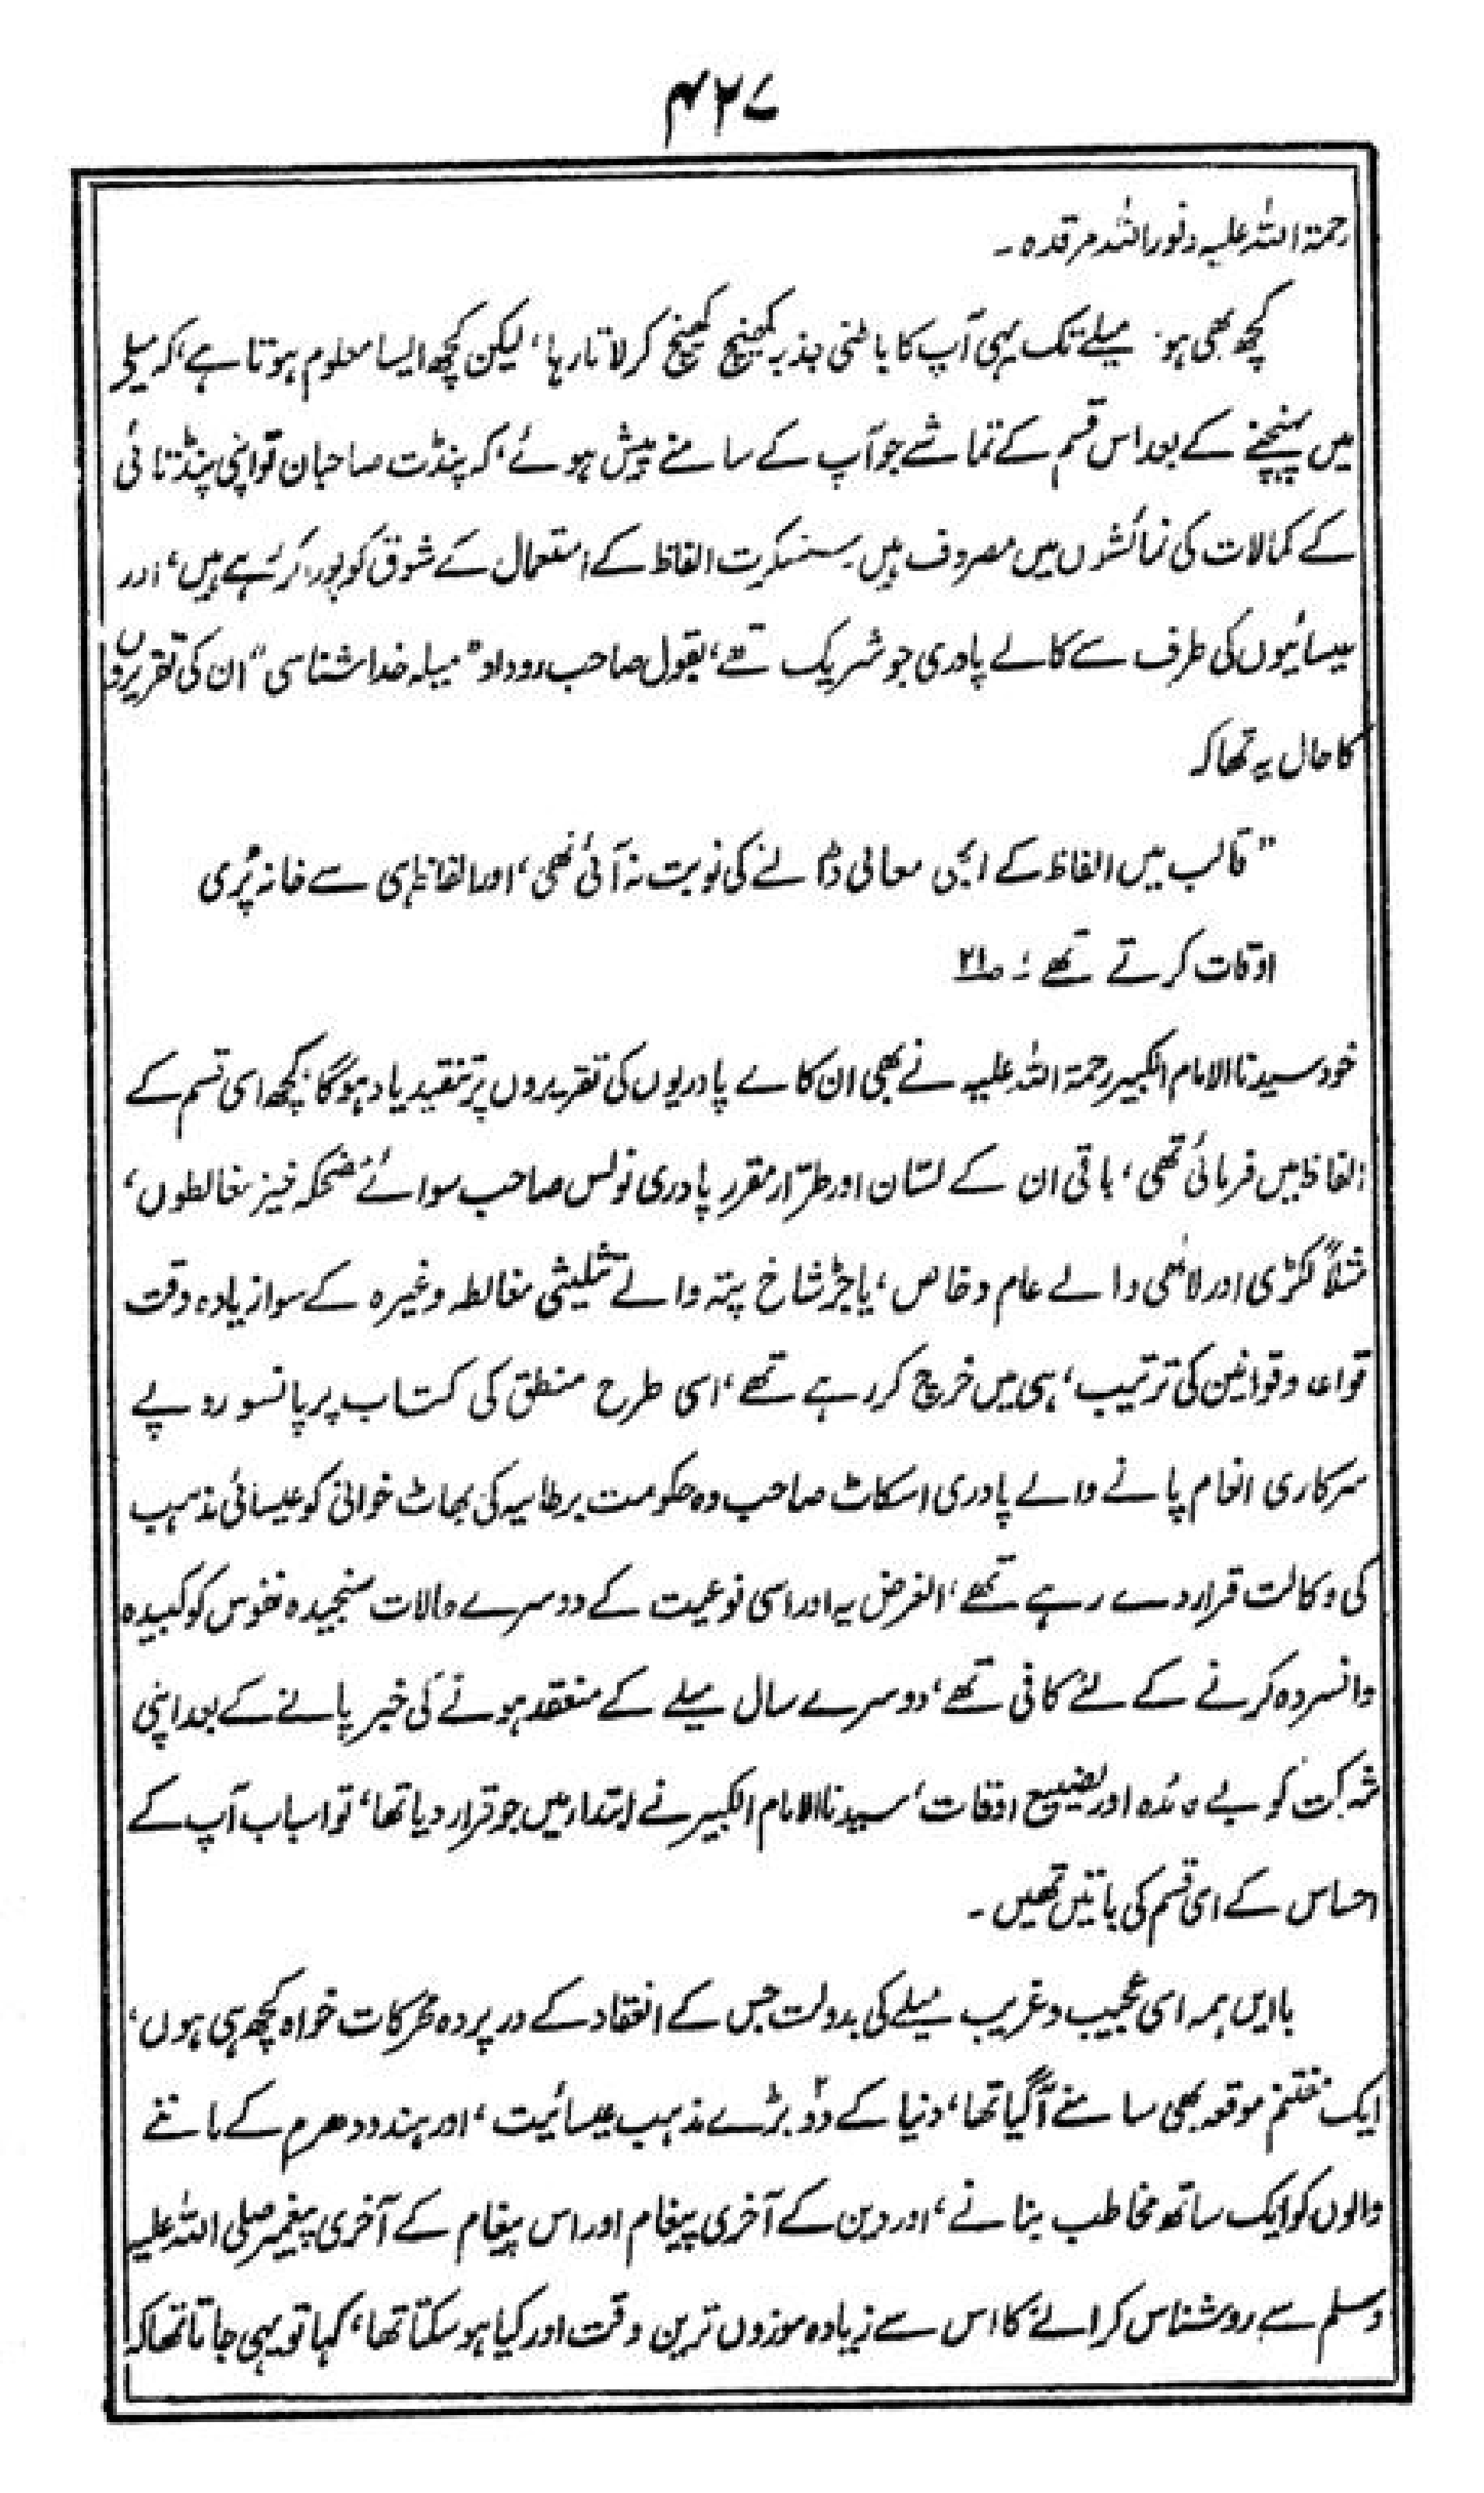 ۴۲۷
رحمۃ اللہ علیہ و نور اللہ مرقدہ۔
کچھ بھی ہو۔ میلے تک یہی آپ کا باطنی جذبہ کھینچ کھینچ کر لاتا رہا، لیکن کچھ ایسا معلوم ہوتا ہے، کہ میلے
میں پہنچنے کے بعد اس قسم کے تماشے جو آپ کے سامنے پیش ہوئے، کہ پنڈت صاحبان تو اپنی پنڈتائی
کے کمالات کی نمائشوں میں مصروف ہیں۔ سنسکرت الفاظ کے استعمال کے شوق کو پورا کر رہے ہیں، اور
عیسائیوں کی طرف سے کالے پادری جو شریک تھے، بقول صاحب روداد "میلہ خدا شناسی" ان کی تقریروں
کا حال یہ تھا کہ
"قالب میں الفاظ کے ابھی معانی ڈالنے کی نوبت نہ آئی تھی، اور الفاظ ہی سے خانہ پُری
اوقات کرتے تھے۔" ص۲۱
خود سیدنا الامام الکبیر رحمۃ اللہ علیہ نے بھی ان کالے پادریوں کی تقریروں پر تنقید یاد ہوگا: کچھ اسی قسم کے
الفاظ میں فرمائی تھی، باقی ان کے لسّان اور طرّار مقرر پادری نولس صاحب سوائے مضحکہ خیز مغالطوں،
مثلاً لکڑی اور لاٹھی والے عام و خاص، یا جڑ شاخ پتہ والے تثلیثی مغالطہ وغیرہ کے سوا زیادہ وقت
قواعد و قوانین کی ترتیب، ہی میں خرچ کر رہے تھے، اسی طرح منطق کی کتاب پر پانسو روپے
سرکاری انعام پانے والے پادری اسکاٹ صاحب وہ حکومت برطانیہ کی بھاٹ خوانی کو عیسائی مذہب
کی وکالت قرار دے رہے تھے، الغرض یہ اور اسی نوعیت کے دوسرے حالات سنجیدہ نفوس کو کبیدہ
و افسردہ کرنے کے لئے کافی تھے، دوسرے سال میلے کے منعقد ہونے کی خبر پانے کے بعد اپنی
شرکت کو بے فائدہ اور تضییع اوقات، سیدنا الامام الکبیر نے ابتدار میں جو قرار دیا تھا، تو اسباب آپ کے
احساس کے اسی قسم کی باتیں تھیں۔
بایں ہمہ اسی عجیب و غریب میلے کی بدولت جس کے انعقاد کے در پردہ محرکات خواہ کچھ ہی ہوں،
ایک مغتنم موقعہ بھی سامنے آگیا تھا، دنیا کے دو بڑے مذہب عیسائیت، اور ہندو دھرم کے ماننے
والوں کو ایک ساتھ مخاطب بنانے، اور دین کے آخری پیغام اور اس پیغام کے آخری پیغمبر صلی اللہ علیہ
وسلم سے روشناس کرانے کا اس سے زیادہ موزوں ترین وقت اور کیا ہو سکتا تھا، کہا تو یہی جاتا تھا کہ